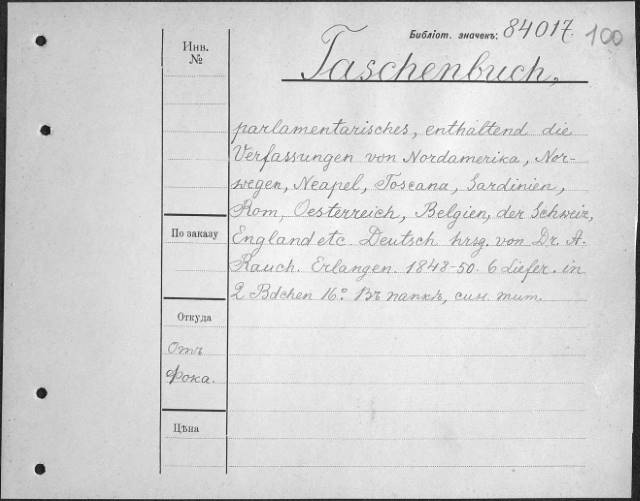 Библіот. значекъ: 84017. 100
Инв.
№
Taschenbuch,
parlamentarisches, enthaltend die
Verfassungen von Nordamerika, Nor-
wegen, Neapel, Toscana, Sardinien,
Rom, Oesterreich, Belgien, der Schweiz,
По заказу
England etc. Deutsch hrsg. von Dr. A.
Rauch. Erlangen. 1848-50. 6 Liefer. in
2 Bdchen 16.° Въ папкѣ, син. тит.
Откуда
Отъ
Фока.
Цѣна